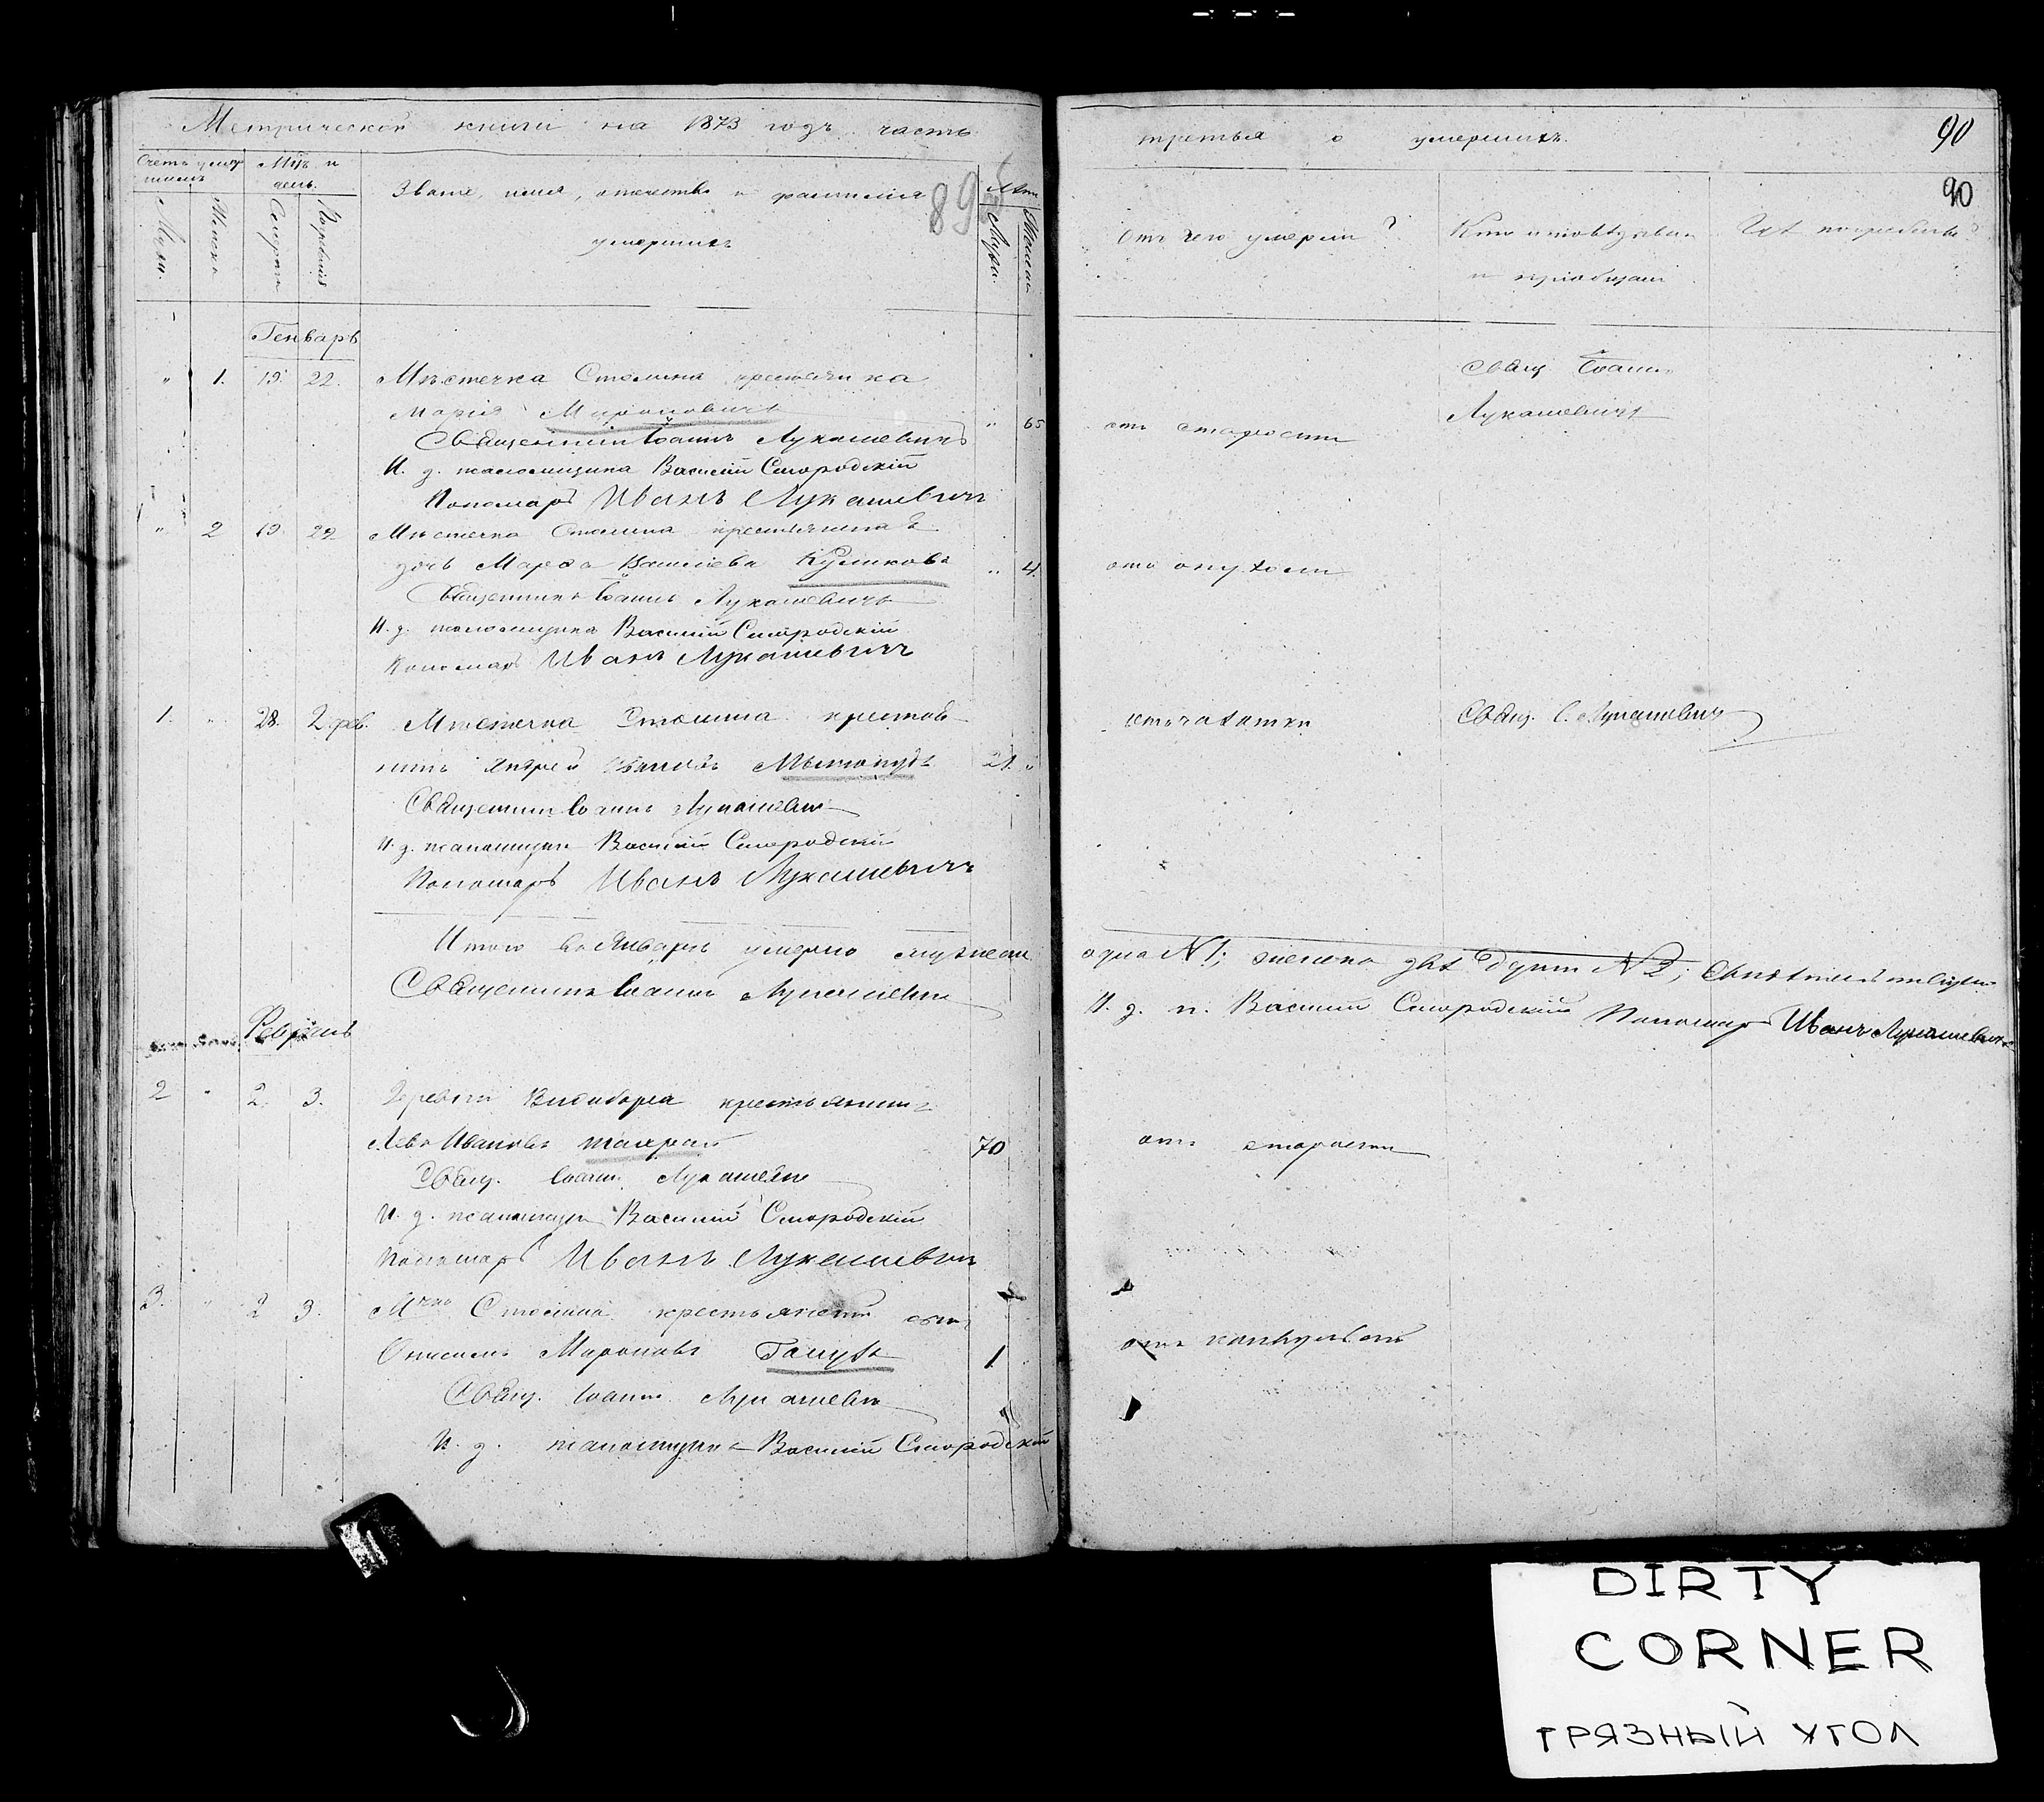 Метрической книги на 1873 годъ часть
Счетъ умершихъ
Мцъ и день.
Званіе, имя, отечество и фамилія
умершихъ
895
Лета
Мужи.
Женска
Смерти
Погребенія
Мужи.
Женска
Генварь
" 1. 19. 22. Мѣстечка Столина крестьянка
Марія Мироновичъ " 65
Священникъ Іоаннъ Лукашевичъ
И. д. псаломщика Василій Смородскій
Пономарь Иванъ Лукашевичъ
" 2 19. 22 Мѣстечка Столина крестьянина
дочь Марѳа Василева Куликова " 4.
Священникъ Іоаннъ Лукашевичъ
И. д. псаломщика Василій Смородскій
Пономарь Иванъ Лукашевичъ
1. " 28. 2. фев. Мѣстечка Столина крестья
нинъ Андрей 21. "
Священникъ Іоаннъ Лукашевич
И. д. псаломщика Василій Смородскій
Пономарь Иванъ Лукашевичъ
Итого въ Январѣ умерло мужеска
Священникъ Іоаннъ Лукашевич
Февраль
2 " 2. 3. Деревни крестьянинъ
Левъ Ивановъ 70
Свящ. Іоаннъ Лукашевич
И. д. псаломщика Василій Смородскій
Пономарь Иванъ Лукашевич
3. " 2 3. Мчка Столина крестьянина сынъ
Онисимъ Мироновъ 1
Свящ. Іоаннъ Лукашевич
И. д. псаломщика Василій Смородскій
третья о умершихъ.
90
90
Отъ чего умерли?
Кто исповѣдывалъ
и пріобщалъ
Гдѣ погребены?
отъ старости
Свящ. Іоаннъ
Лукашевичъ
отъ опухоли
отъ чахотки
Свящ. І. Лукашевич
одна №1; женска двѣ душъ №2;
И. д. п. Василій Смородскій Пономарь Иванъ Лукашевичъ
отъ старости
отъ конвульсій
DIRTY
CORNER
ГРЯЗНЫЙ УГОЛ